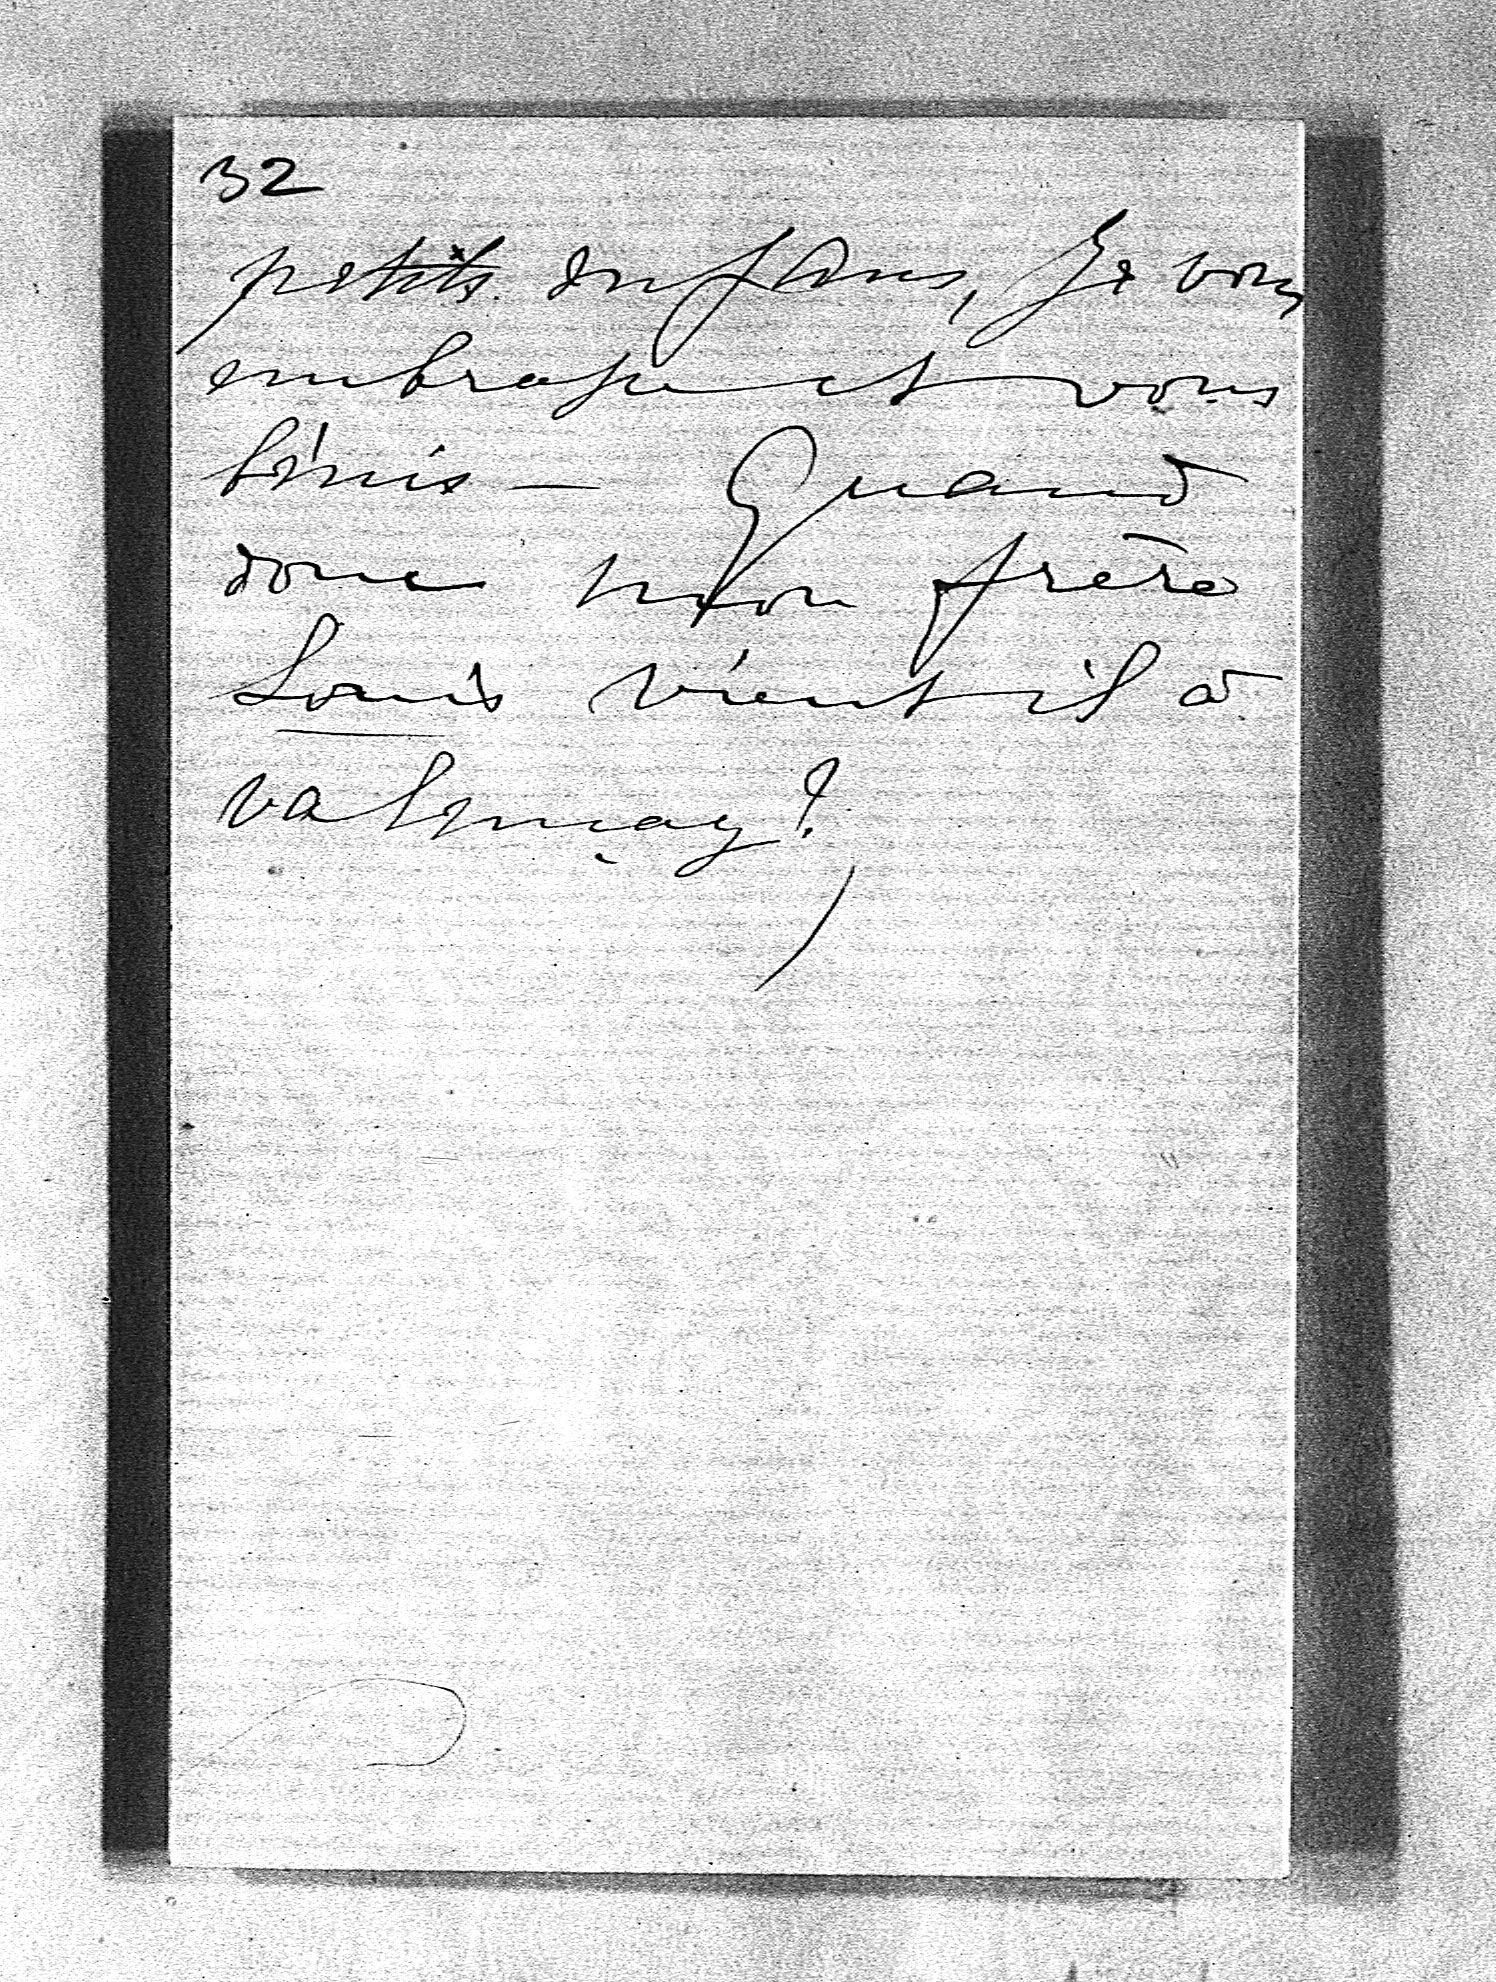 32
petits enfans, je vous
embrasse et vous
bénis — Quand
donc mon frère
Louis vient il à
valençay?